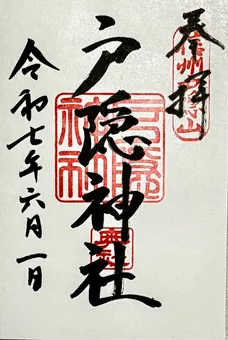 奉拝
信州戸隠山
戸隠神社
奥社
令和七年六月一日